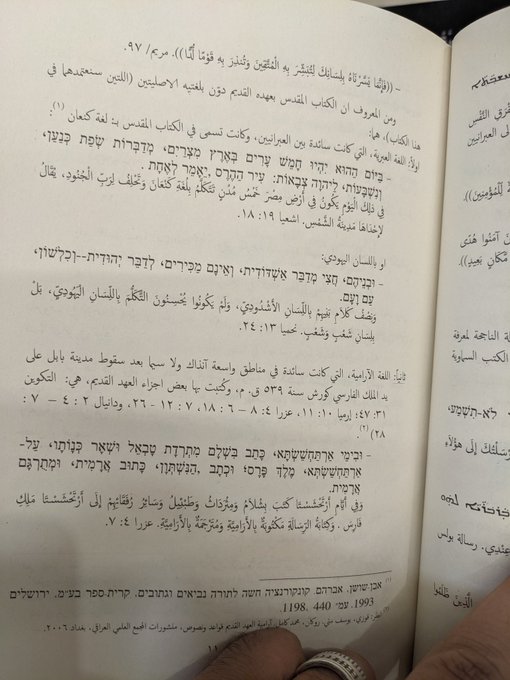 - ((فَإِنَّمَا يَسَّرْنَاهُ بِلِسَانِكَ لِتُبَشِّرَ بِهِ الْمُتَّقِينَ وَتُنذِرَ بِهِ قَوْمًا لُّدًّا)). مريم/ ٩٧.
ومن المعروف ان الكتاب المقدس بعهده القديم دوّن بلغتيه الاصليتين (اللتين سنعتمدهما في
هذا الكتاب)، هما:
اولاً: اللغة العبرية، التي كانت سائدة بين العبرانيين، وكانت تسمى في الكتاب المقدس بـ: لغة كنعان (١):
- בַּיּוֹם הַהוּא יִהְיוּ חָמֵשׁ עָרִים בְּאֶרֶץ מִצְרַיִם, מְדַבְּרוֹת שְׂפַת כְּנַעַן,
וְנִשְׁבָּעוֹת, לַיהוָה צְבָאוֹת: עִיר הַהֶרֶס, יֵאָמֵר לְאֶחָת.
فِي ذلِكَ الْيَوْمِ يَكُونُ فِي أَرْضِ مِصْرَ خَمْسُ مُدُنٍ تَتَكَلَّمُ بِلُغَةِ كَنْعَانَ وَتَحْلِفُ لِرَبِّ الْجُنُودِ، يُقَالُ
لإِحْدَاهَا مَدِينَةُ الشَّمْسِ. اشعيا ١٩: ١٨.
او باللسان اليهودي:
- וּבְנֵיהֶם, חֲצִי מְדַבֵּר אַשְׁדּוֹדִית, וְאֵינָם מַכִּירִים, לְדַבֵּר יְהוּדִית--וְכִלְשׁוֹן,
עַם וָעָם.
وَنِصْفُ كَلاَمِ بَنِيهِمْ بِاللِّسَانِ الأَشْدُودِيِّ، وَلَمْ يَكُونُوا يُحْسِنُونَ التَّكَلُّمَ بِاللِّسَانِ الْيَهُودِيِّ، بَلْ
بِلِسَانِ شَعْبٍ وَشَعْبٍ. نحميا ١٣: ٢٤.
ثانياً: اللغة الآرامية، التي كانت سائدة في مناطق واسعة آنذاك ولا سيما بعد سقوط مدينة بابل على
يد الملك الفارسي كورش سنة ٥٣٩ ق. م، وكُتبت بها بعض اجزاء العهد القديم، هي: التكوين
٣١: ٤٧؛ إرميا ١٠: ١١، عزرا ٤: ٨ – ٦: ١٨، ٧: ١٢ - ٢٦، ودانيال ٢: ٤ – ٧:
٢٨ (٢).
- וּבִימֵי אַרְתַּחְשַׁשְׂתָּא, כָּתַב בִּשְׁלָם מִתְרְדָת טָבְאֵל וּשְׁאָר כְּנָוֹתָו, עַל-
אַרְתַּחְשַׁשְׂתְּא, מֶלֶךְ פָּרָס; וּכְתָב, הַנִּשְׁתְּוָן, כָּתוּב אֲרָמִית, וּמְתֻרְגָּם
אֲרָמִית.
وَفِي أَيَّامِ أَرْتَحْشَسْتَا كَتَبَ بِشْلاَمُ وَمِثْرَدَاثُ وَطَبْئِيلُ وَسَائِرُ رُفَقَائِهِمْ إِلَى أَرْتَحْشَسْتَا مَلِكِ
فَارِسَ. وَكِتَابَةُ الرِّسَالَةِ مَكْتُوبَةٌ بِالأَرَامِيَّةِ وَمُتَرْجَمَةٌ بِالأَرَامِيَّةِ. عزرا ٤: ٧.
(١) אבן-שושן, אברהם. קונקורנציה חשה לתורה נביאים וגתובים. קרית-ספר בע״מ. ירושלים
1993. עמ׳ 440, 1198.
انظر: فوزي، يوسف متي. روكان، محمد كامل. آرامية العهد القديم قواعد ونصوص، منشورات المجمع العلمي العراقي، بغداد ٢٠٠٦.
١١